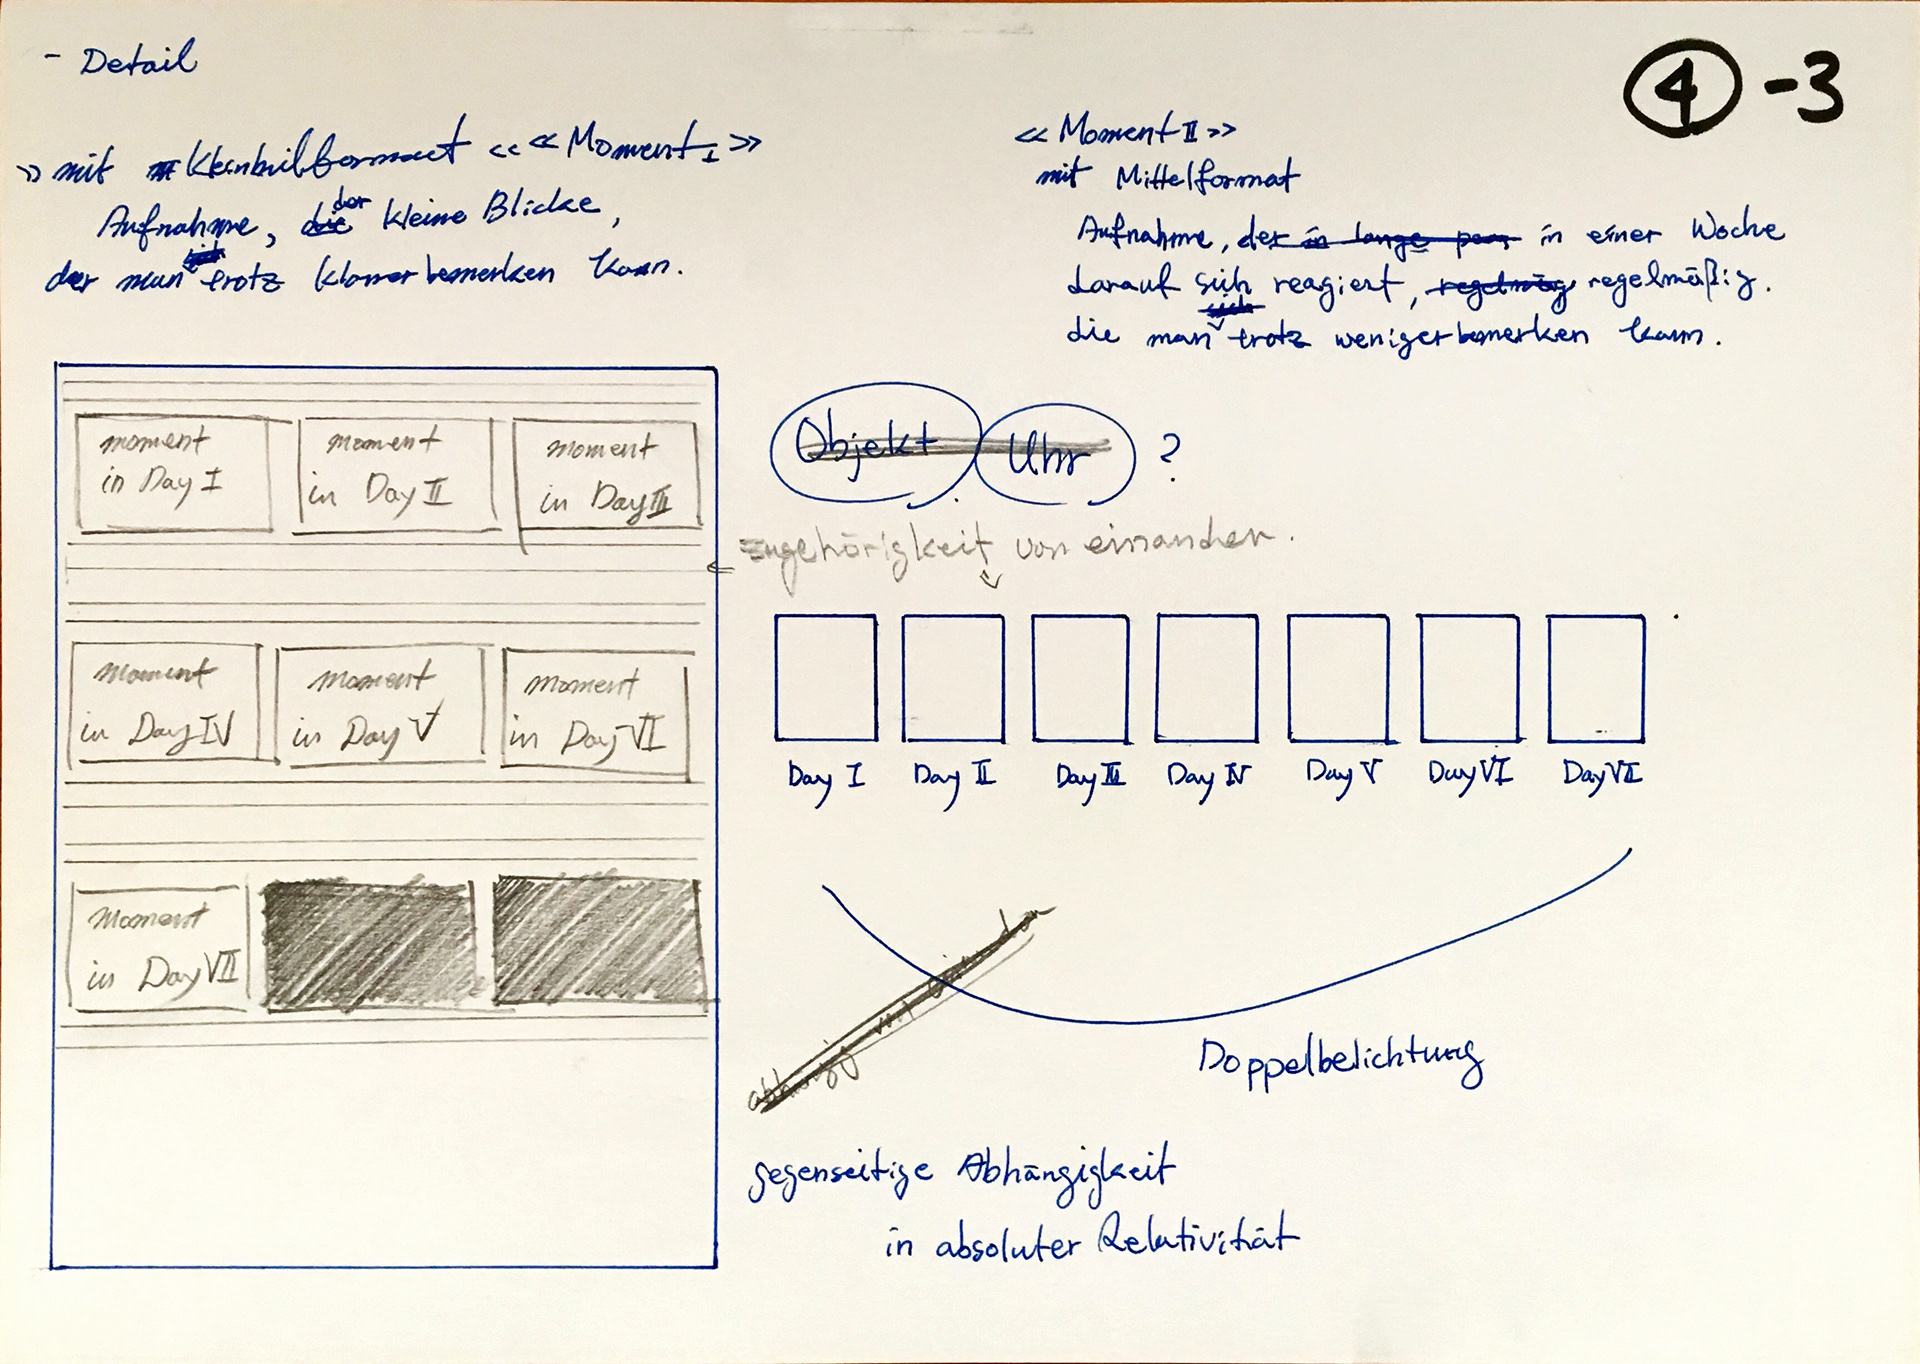 - Detail
④-3
» mit Kleinbilformat « « Moment I »
Aufnahme, die der kleine Blicke,
der man sich trotz klarer bemerken kann.
« Moment II »
mit Mittelformat
Aufnahme, der in lange in einer Woche
darauf sich reagiert, regelmäßig.
die man sich trotz weniger bemerken kann.
moment in Day I
moment in Day II
moment in Day III
moment in Day IV
moment in Day V
moment in Day VI
moment in Day VII
Objekt Uhr ?
Zugehörigkeit von einander.
Day I Day II Day III Day IV Day V Day VI Day VII
Doppelbelichtung
gegenseitige Abhängigkeit
in absoluter Relativität